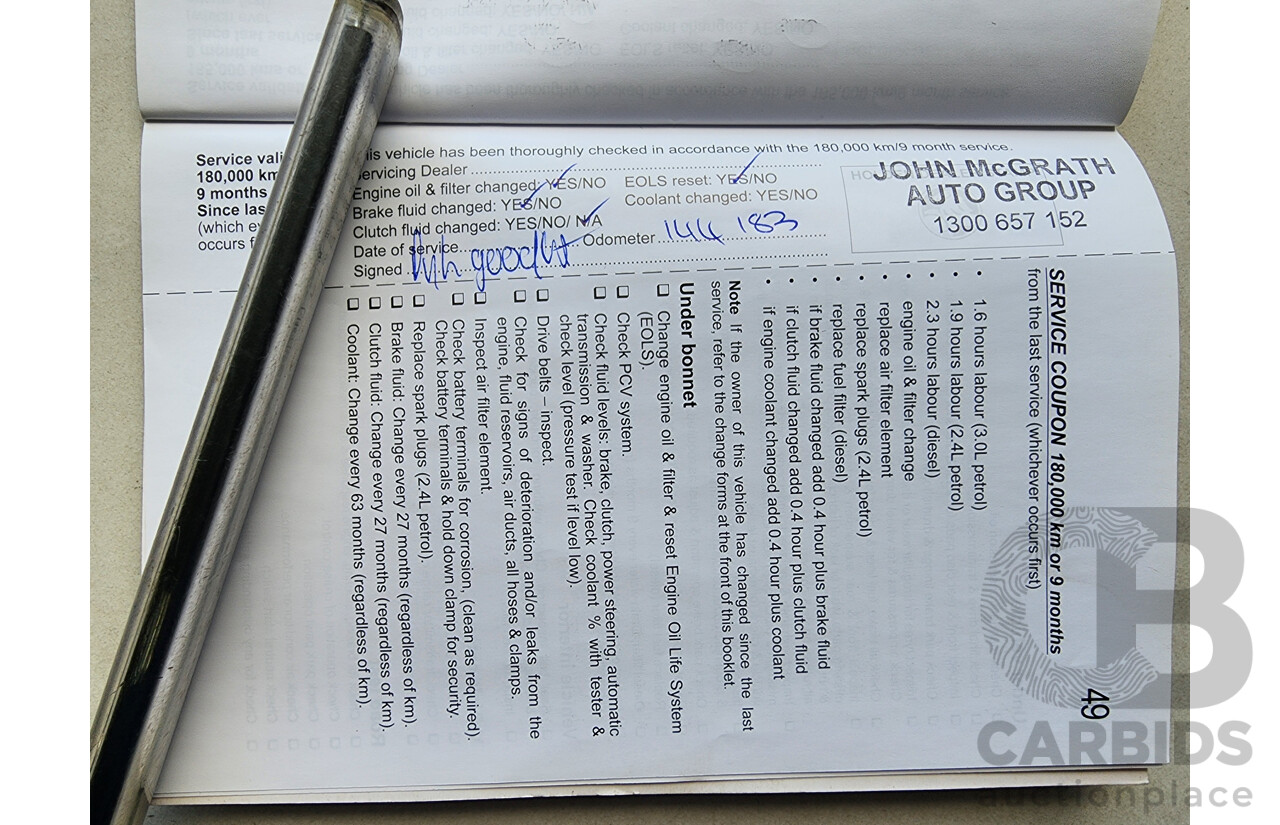 Service vali
180,000 km
9 months
Since las
(which e
occurs f
is vehicle has been thoroughly checked in accordance with the 180,000 km/9 month service.
ervicing Dealer
Engine oil & filter changed: YES/NO EOLS reset: YES/NO
Brake fluid changed: YES/NO Coolant changed: YES/NO
Clutch fluid changed: YES/NO/ N/A
Date of service Odometer 144 183
Signed
JOHN McGRATH
AUTO GROUP
1300 657 152
49
SERVICE COUPON 180,000 km or 9 months
from the last service (whichever occurs first)
• 1.6 hours labour (3.0L petrol)
• 1.9 hours labour (2.4L petrol)
• 2.3 hours labour (diesel)
• engine oil & filter change
• replace air filter element
• replace spark plugs (2.4L petrol)
• replace fuel filter (diesel)
• if brake fluid changed add 0.4 hour plus brake fluid
• if clutch fluid changed add 0.4 hour plus clutch fluid
• if engine coolant changed add 0.4 hour plus coolant
Note If the owner of this vehicle has changed since the last
service, refer to the change forms at the front of this booklet.
Under bonnet
❑ Change engine oil & filter & reset Engine Oil Life System
(EOLS).
❑ Check PCV system.
❑ Check fluid levels: brake, clutch, power steering, automatic
transmission & washer. Check coolant % with tester &
check level (pressure test if level low).
❑ Drive belts – inspect.
❑ Check for signs of deterioration and/or leaks from the
engine, fluid reservoirs, air ducts, all hoses & clamps.
❑ Inspect air filter element.
❑ Check battery terminals for corrosion, (clean as required).
Check battery terminals & hold down clamp for security.
❑ Replace spark plugs (2.4L petrol).
❑ Brake fluid: Change every 27 months (regardless of km).
❑ Clutch fluid: Change every 27 months (regardless of km).
❑ Coolant: Change every 63 months (regardless of km).
CB
CARBIDS
auctionplace